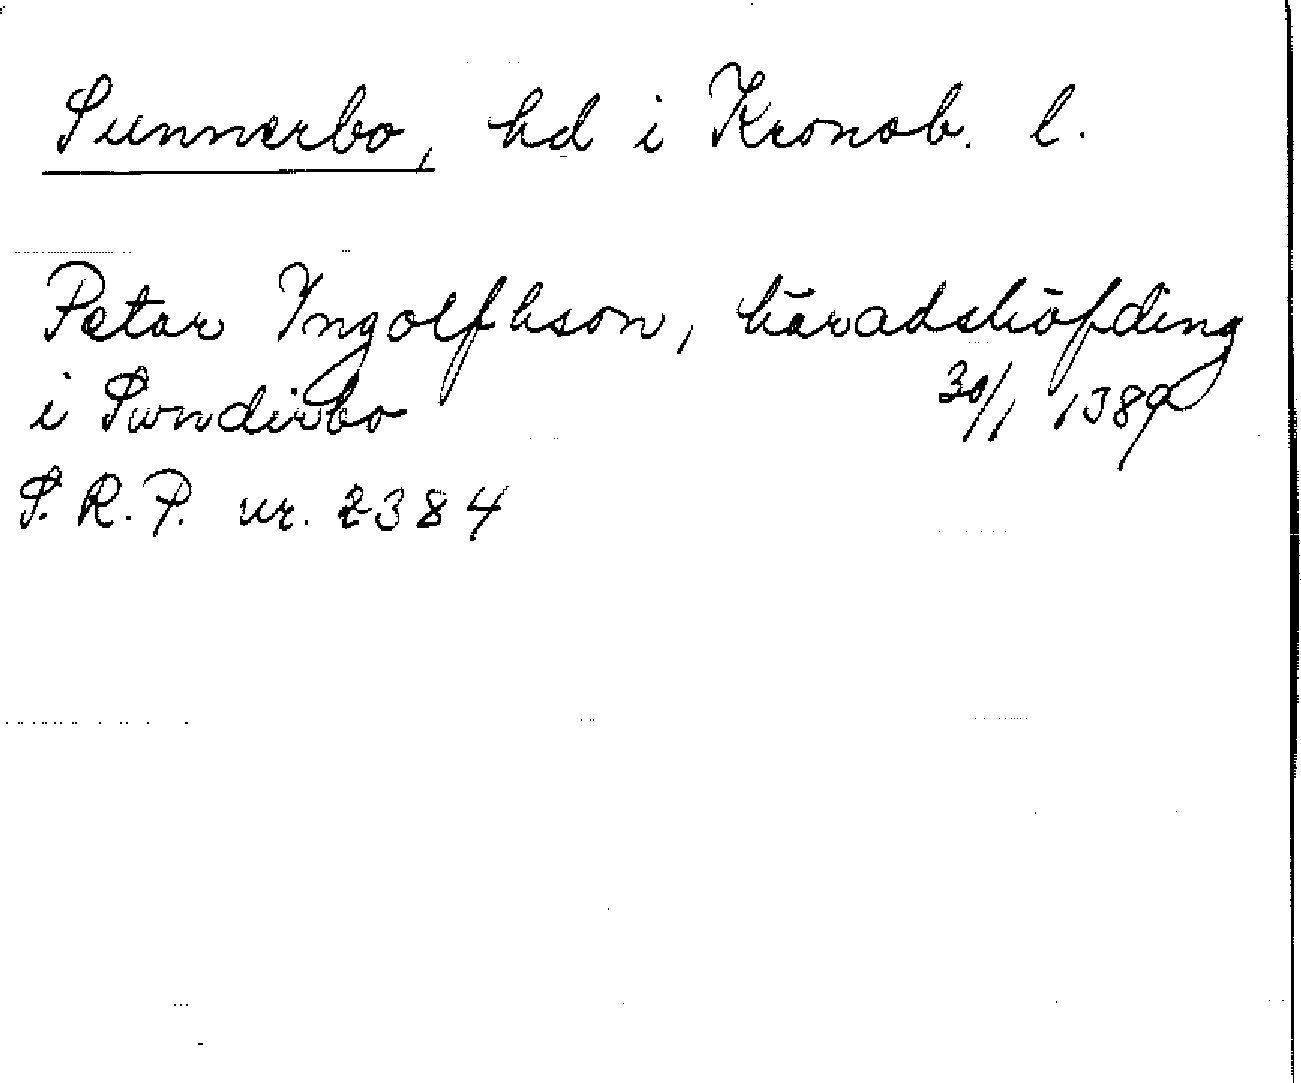 Sunnerbo, hd i Kronob. l.
Petar Ingolfhson, häradshöfding
i Swndirbo 30/1 1389
S. R. P. nr. 2384